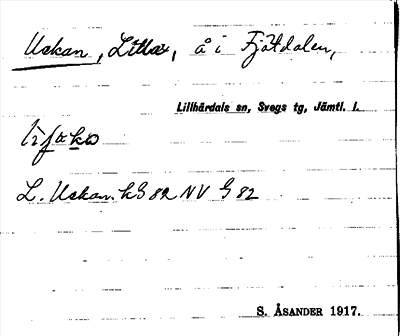 Uskan, Lilla, å i Fjätdalen,
Lillhärdals sn, Svegs tg, Jämtl. l.
L. Uskan. kG 82 NV G 82
S. ÅSANDER 1917.